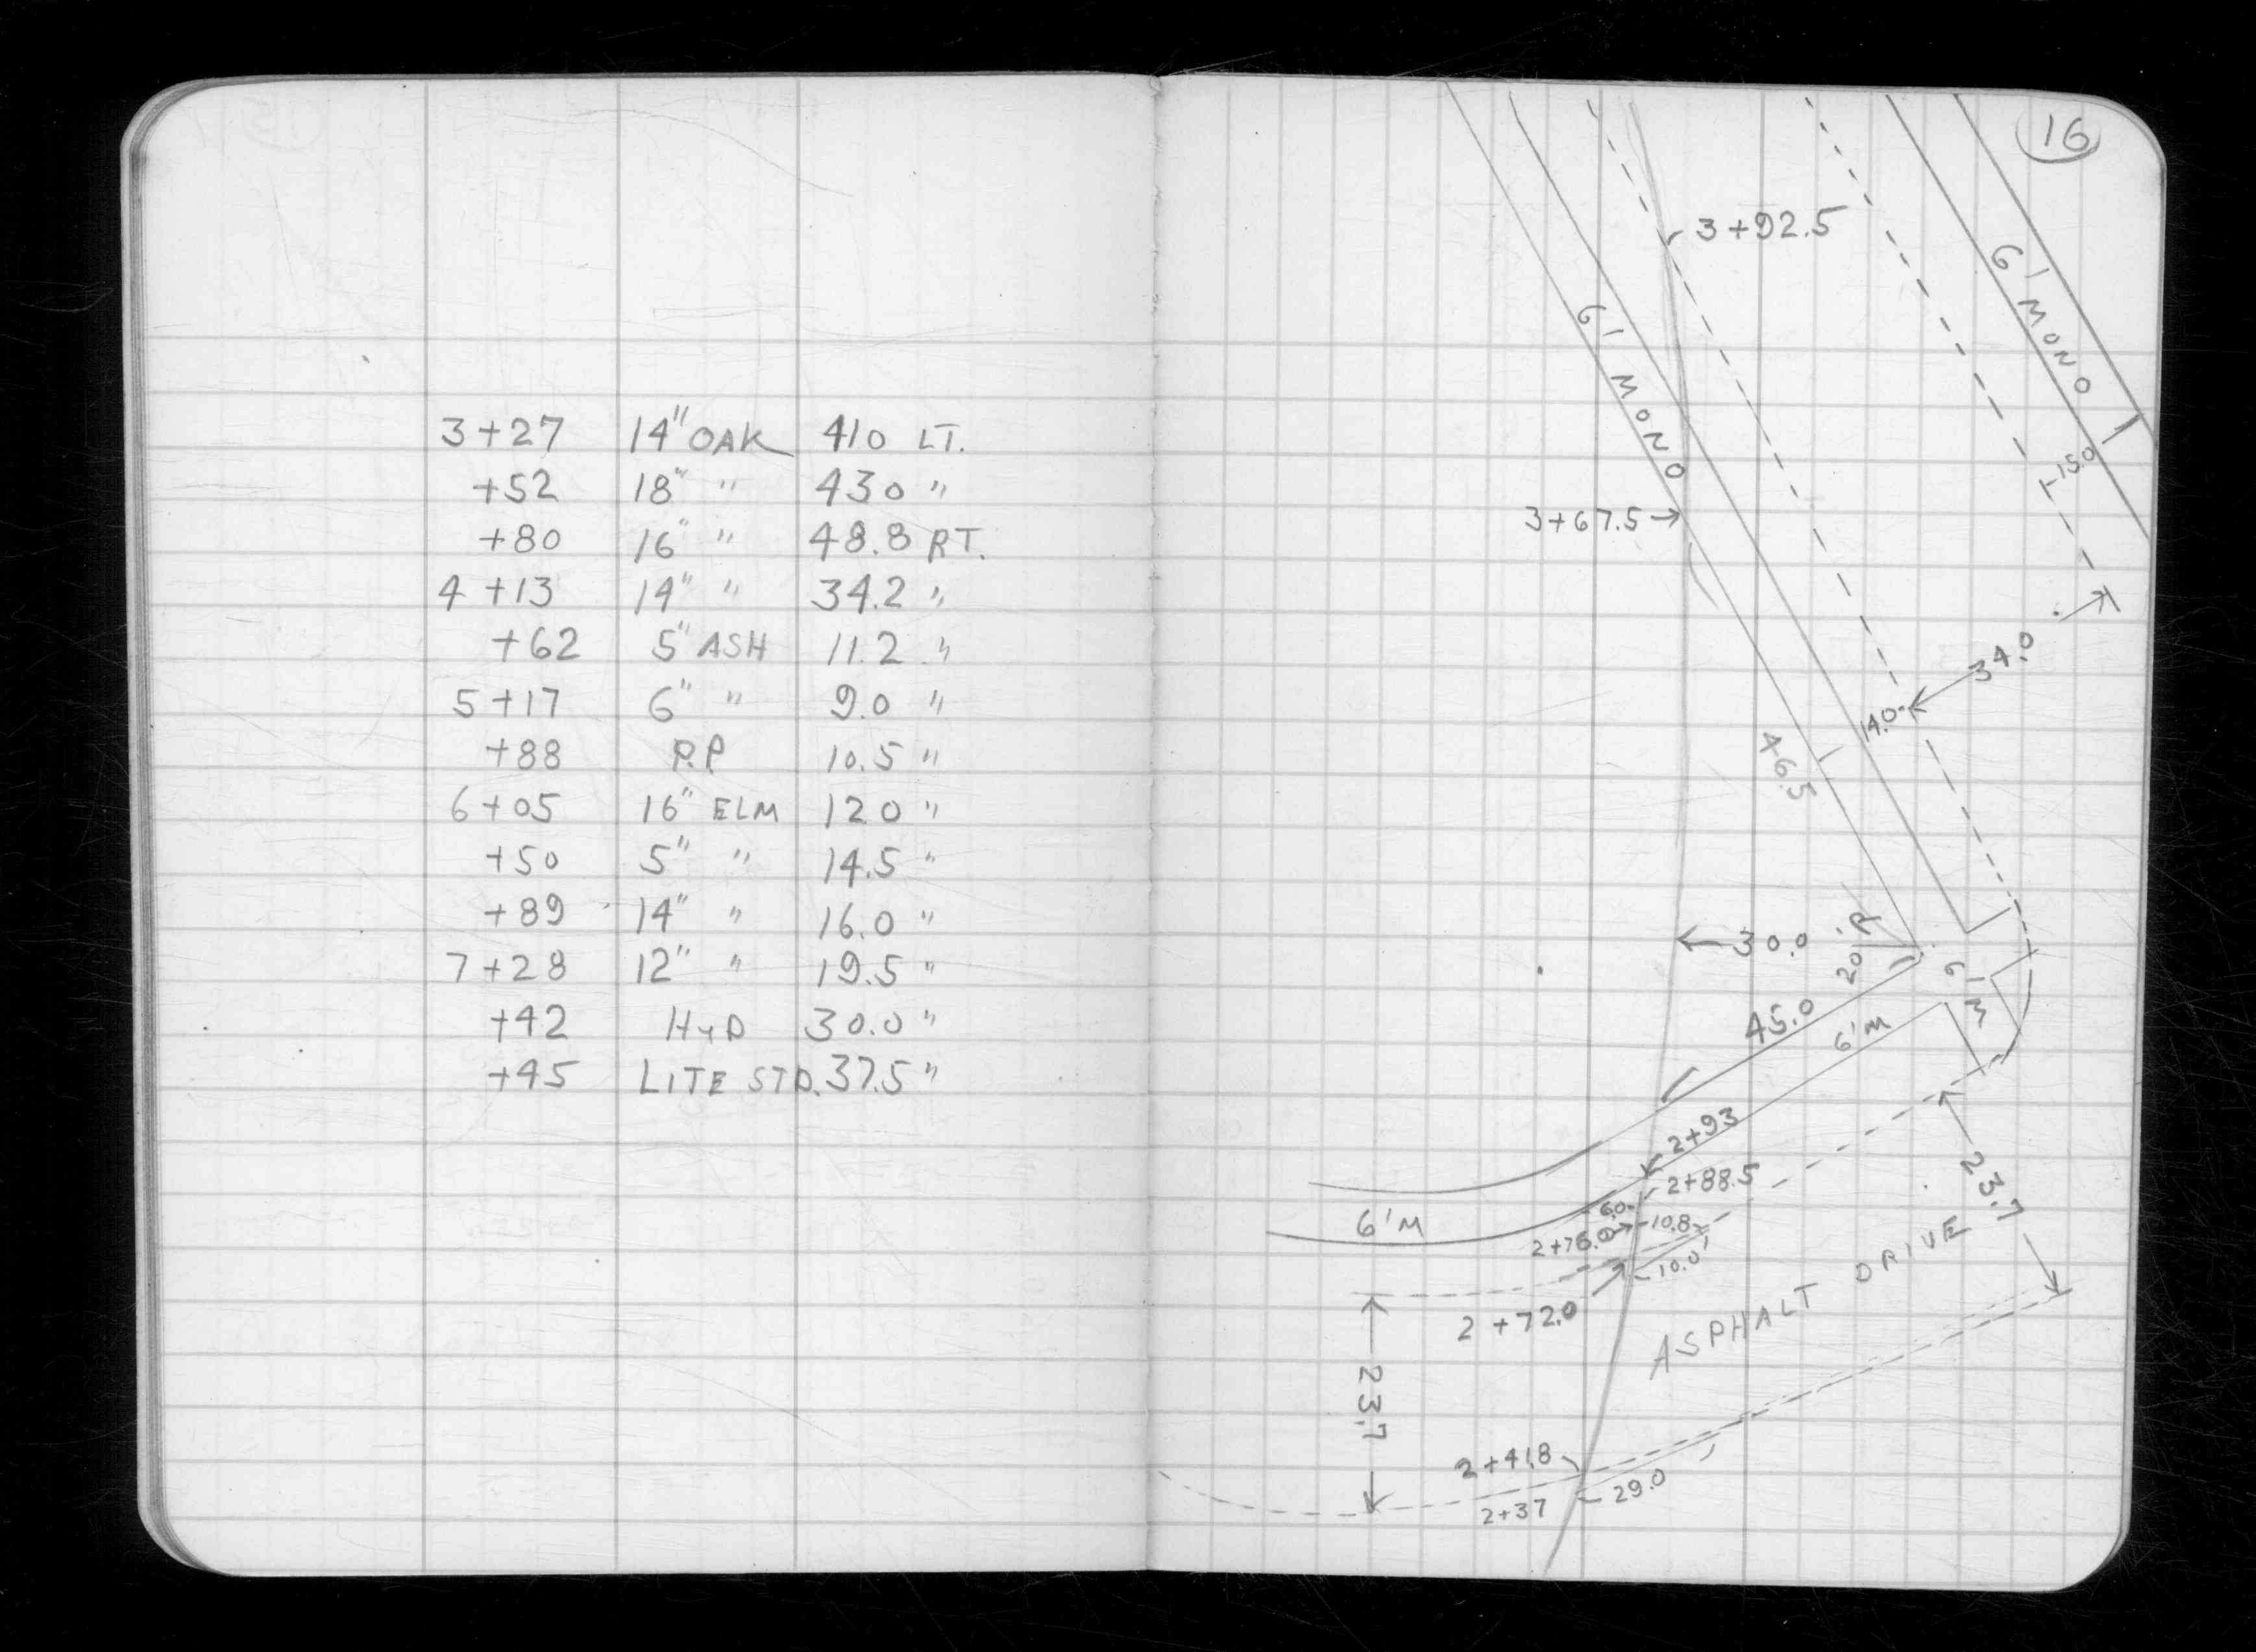 3+27 14" OAK 41.0 LT.
+52 18" " 43.0 "
+80 16" " 48.8 RT.
4+13 14" " 34.2 "
+62 5" ASH 11.2 "
5+17 6" " 9.0 "
+88 P.P 10.5 "
6+05 16" ELM 12.0 "
+50 5" " 14.5 "
+89 14" " 16.0 "
7+28 12" " 19.5 "
+42 HYD 30.0 "
+45 LITE STD. 37.5 "
16
3+92.5
6' MONO
6' MONO
15.0
3+67.5
34.0
14.0
46.5
30.0
20' R
6' M
45.0
6' M
2+93
2+88.5
6.0
6' M
10.8
2+76.0
10.0
23.7
2+72.0
ASPHALT DRIVE
23.7
2+41.8
29.0
2+37